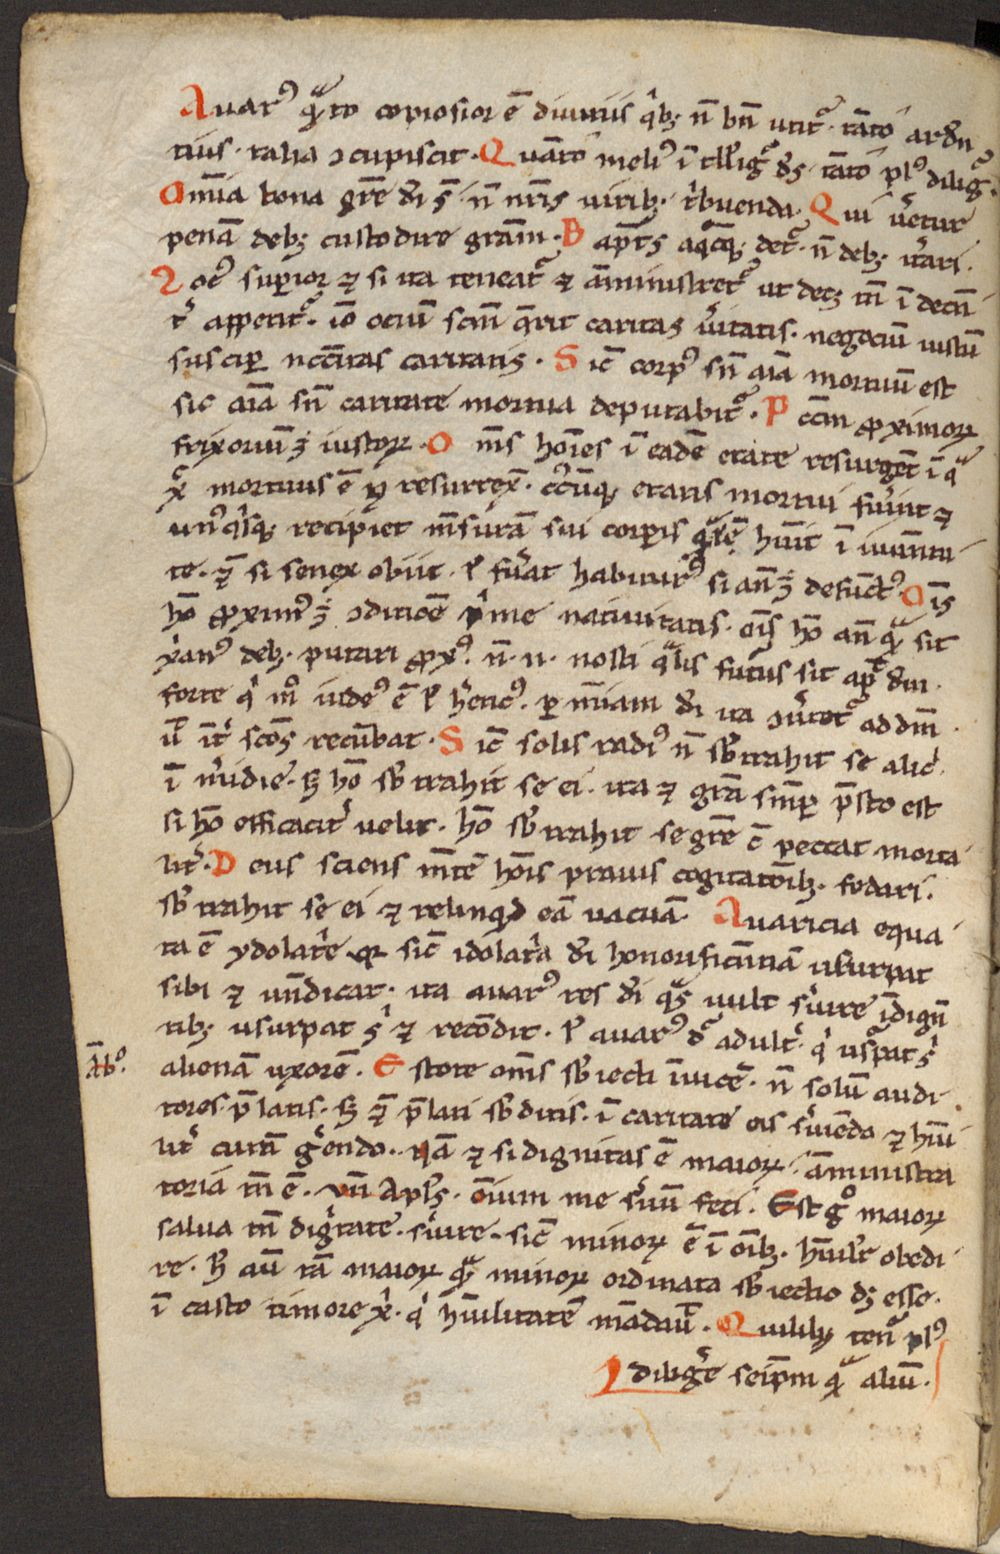 Auar᷒ qͣnto copiosior ē diuitiis qͥbꝫ n̄ bn̄ utit᷑. tāto arden
tius. talia ↄcupiscit. Quāto meli᷒ ītellig᷑ dꝰ. tāto pl᷒ dilig᷑.
Om̄ia bona gr̄e dī sͭ. n̄ nr̄is uiribꝫ. tͥbuenda. Qui ůetur
penā debꝫ custodire gr̄am. B apt̄s debꝫ
Locꝰ superior ⁊ si ita teneat᷑ ⁊ amministret᷑ ut decꝫ tn̄ īdecēn
tͬ appetit᷑. iō ociū scm̄ q̄rit caritas ůitatis. negociū iustū
suscipit necc̄itas caritatis. Sic̄ corp᷒ sn̄ aīa mortuū est
sic aīa sn̄ caritate mortua deputabit᷑. ꝓximoꝝ
iustoꝝ. Om̄s hoīes ī eadē etate resurgēt ī qͣ
xͬ mortuus ē ⁊ resurrex̄. etatis mortui fuīnt ⁊
un᷒qͥsqꝫ recipiet mn̄surā sui corꝑis qͣlē hūit ī iuuentu
te. ⁊ si senex obiit. ł fuͦat habitur᷒ si an̄ defūct᷒. Oīs
hō ꝓxim᷒ ↄditiōe pͥme natiuitatis. oīs hō an̄ qͣ sit
xͥan᷒ debꝫ putari ꝓx᷒. n̄. n. nosti qͣlis futus sit apͩ dm̄.
forte qͥ m᷒ iude᷒ ē ł hͤtic᷒. ꝑ mīam dī ita ↄůtet᷑ ad dm̄
ut itͬ scōs recūbat. Sic̄ solis radi᷒ n̄ sb̄trahit se alic᷒
ī mͥidie. sꝫ hō sb̄trahit se ei. ita ⁊ gr̄a smꝑ p̄sto est
si hō efficacitͬ uelit. hō sb̄trahit se gr̄e c̄ peccat morta
litͬ. Deus sciens mn̄tē hoīs prauis cogitatōibꝫ. fedari.
sb̄trahit se ei ⁊ relinqͥd eā uacuā. Auaricia equa
ta ē ydolatͥe qꝛ sic̄ idolatͥa dī honorificentiā usurpat
sibi ⁊ uendicat. ita auar᷒ res dī qͣs uult sůire īdigen
tibꝫ usurpat sͥ ⁊ recōdit. ł auar᷒ d᷑ adultͬ. qͥ usᷓpat sͥ
Ab᷒.
alienā uxorē. Estote om̄s sb̄iecti īuicē. n̄ solū audi
tores p̄latis. sꝫ ⁊ p̄lati sb̄ditis. ī caritate eis sůiēdo ⁊ hūi
litͬ curā gͤendo. nā ⁊ si dignitas ē maioꝝ. āministra
toria tn̄ ē. vn̄ apl̄s. oīum me sůū feci. Est gͦ maioꝝ
salua tn̄ digͥtate. sůire. sic̄ minoꝝ ē ī oībꝫ. hūilͬ obedi
re. hͨ aū tā maioꝝ qͣ minoꝝ ordinata sb̄iectio dꝫ esse.
ī casto timore xͥ. qͥ hūilitatē mādaůt. Quilibꝫ tenᷓ pl᷒
diligͤe seip̄m qͣ aliū.